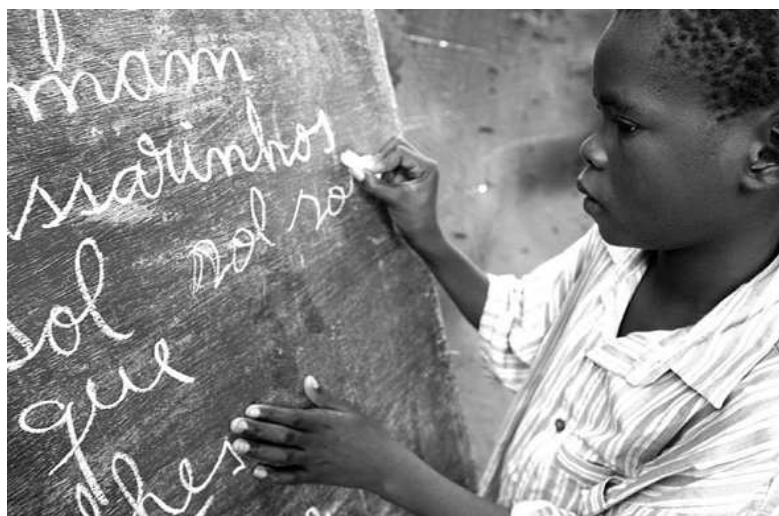 mam
ssarinhos
sol sol so
que
lhes